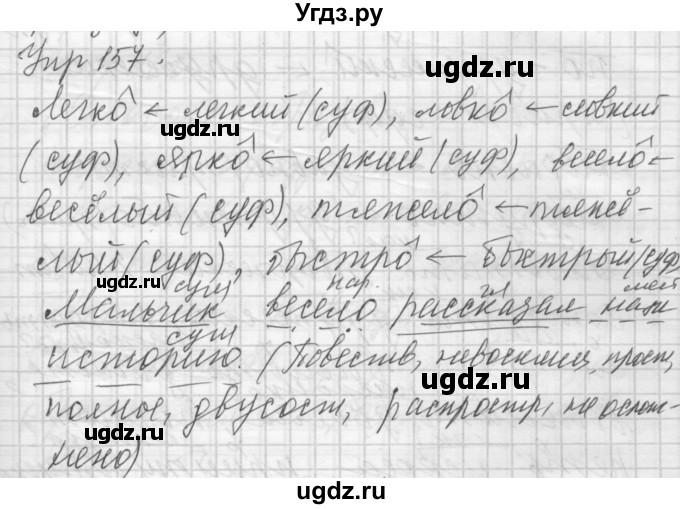 Угдз.ру
Упр 157.
легко ← легкий (суф), ловко ← ловкий
(суф), ярко ← яркий (суф), весело ←
весёлый (суф), тяжело ← тяжё-
лый (суф), быстро ← быстрый (суф)
сущ нар. гл мест
Мальчик весело рассказал нам
сущ
историю. (Повеств, невосклиц, прост,
полное, двусост, распростр, не ослож-
нено)
ugdz.ru
ugdz.ru
ugdz.ru
ugdz.ru
ugdz.ru
ugdz.ru
ugdz.ru
ugdz.ru